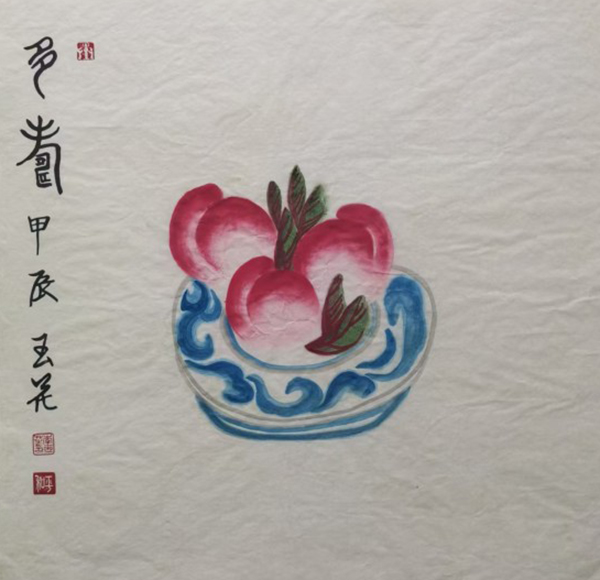 多寿甲辰玉花